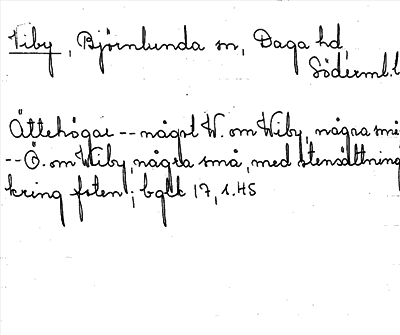 Viby, Björnlunda sn, Daga hd,
Söderml. l
Ättehögar -- något W. om Wiby, några små
-- Ö. om Wiby, några små, med stensättning
kring foten; bglk 17, 1. HS